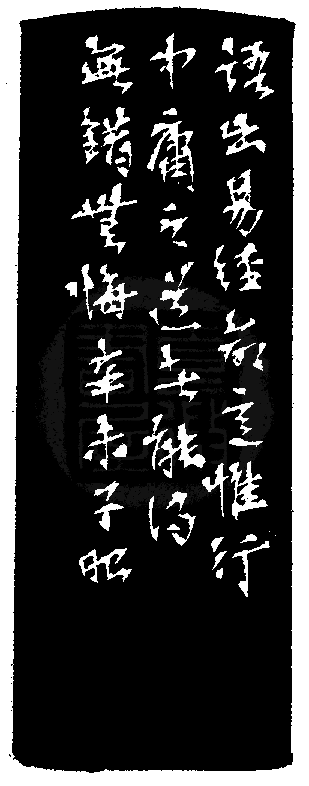 語出易經意惟行
中庸之道者能得
無錯無悔辛未子昭